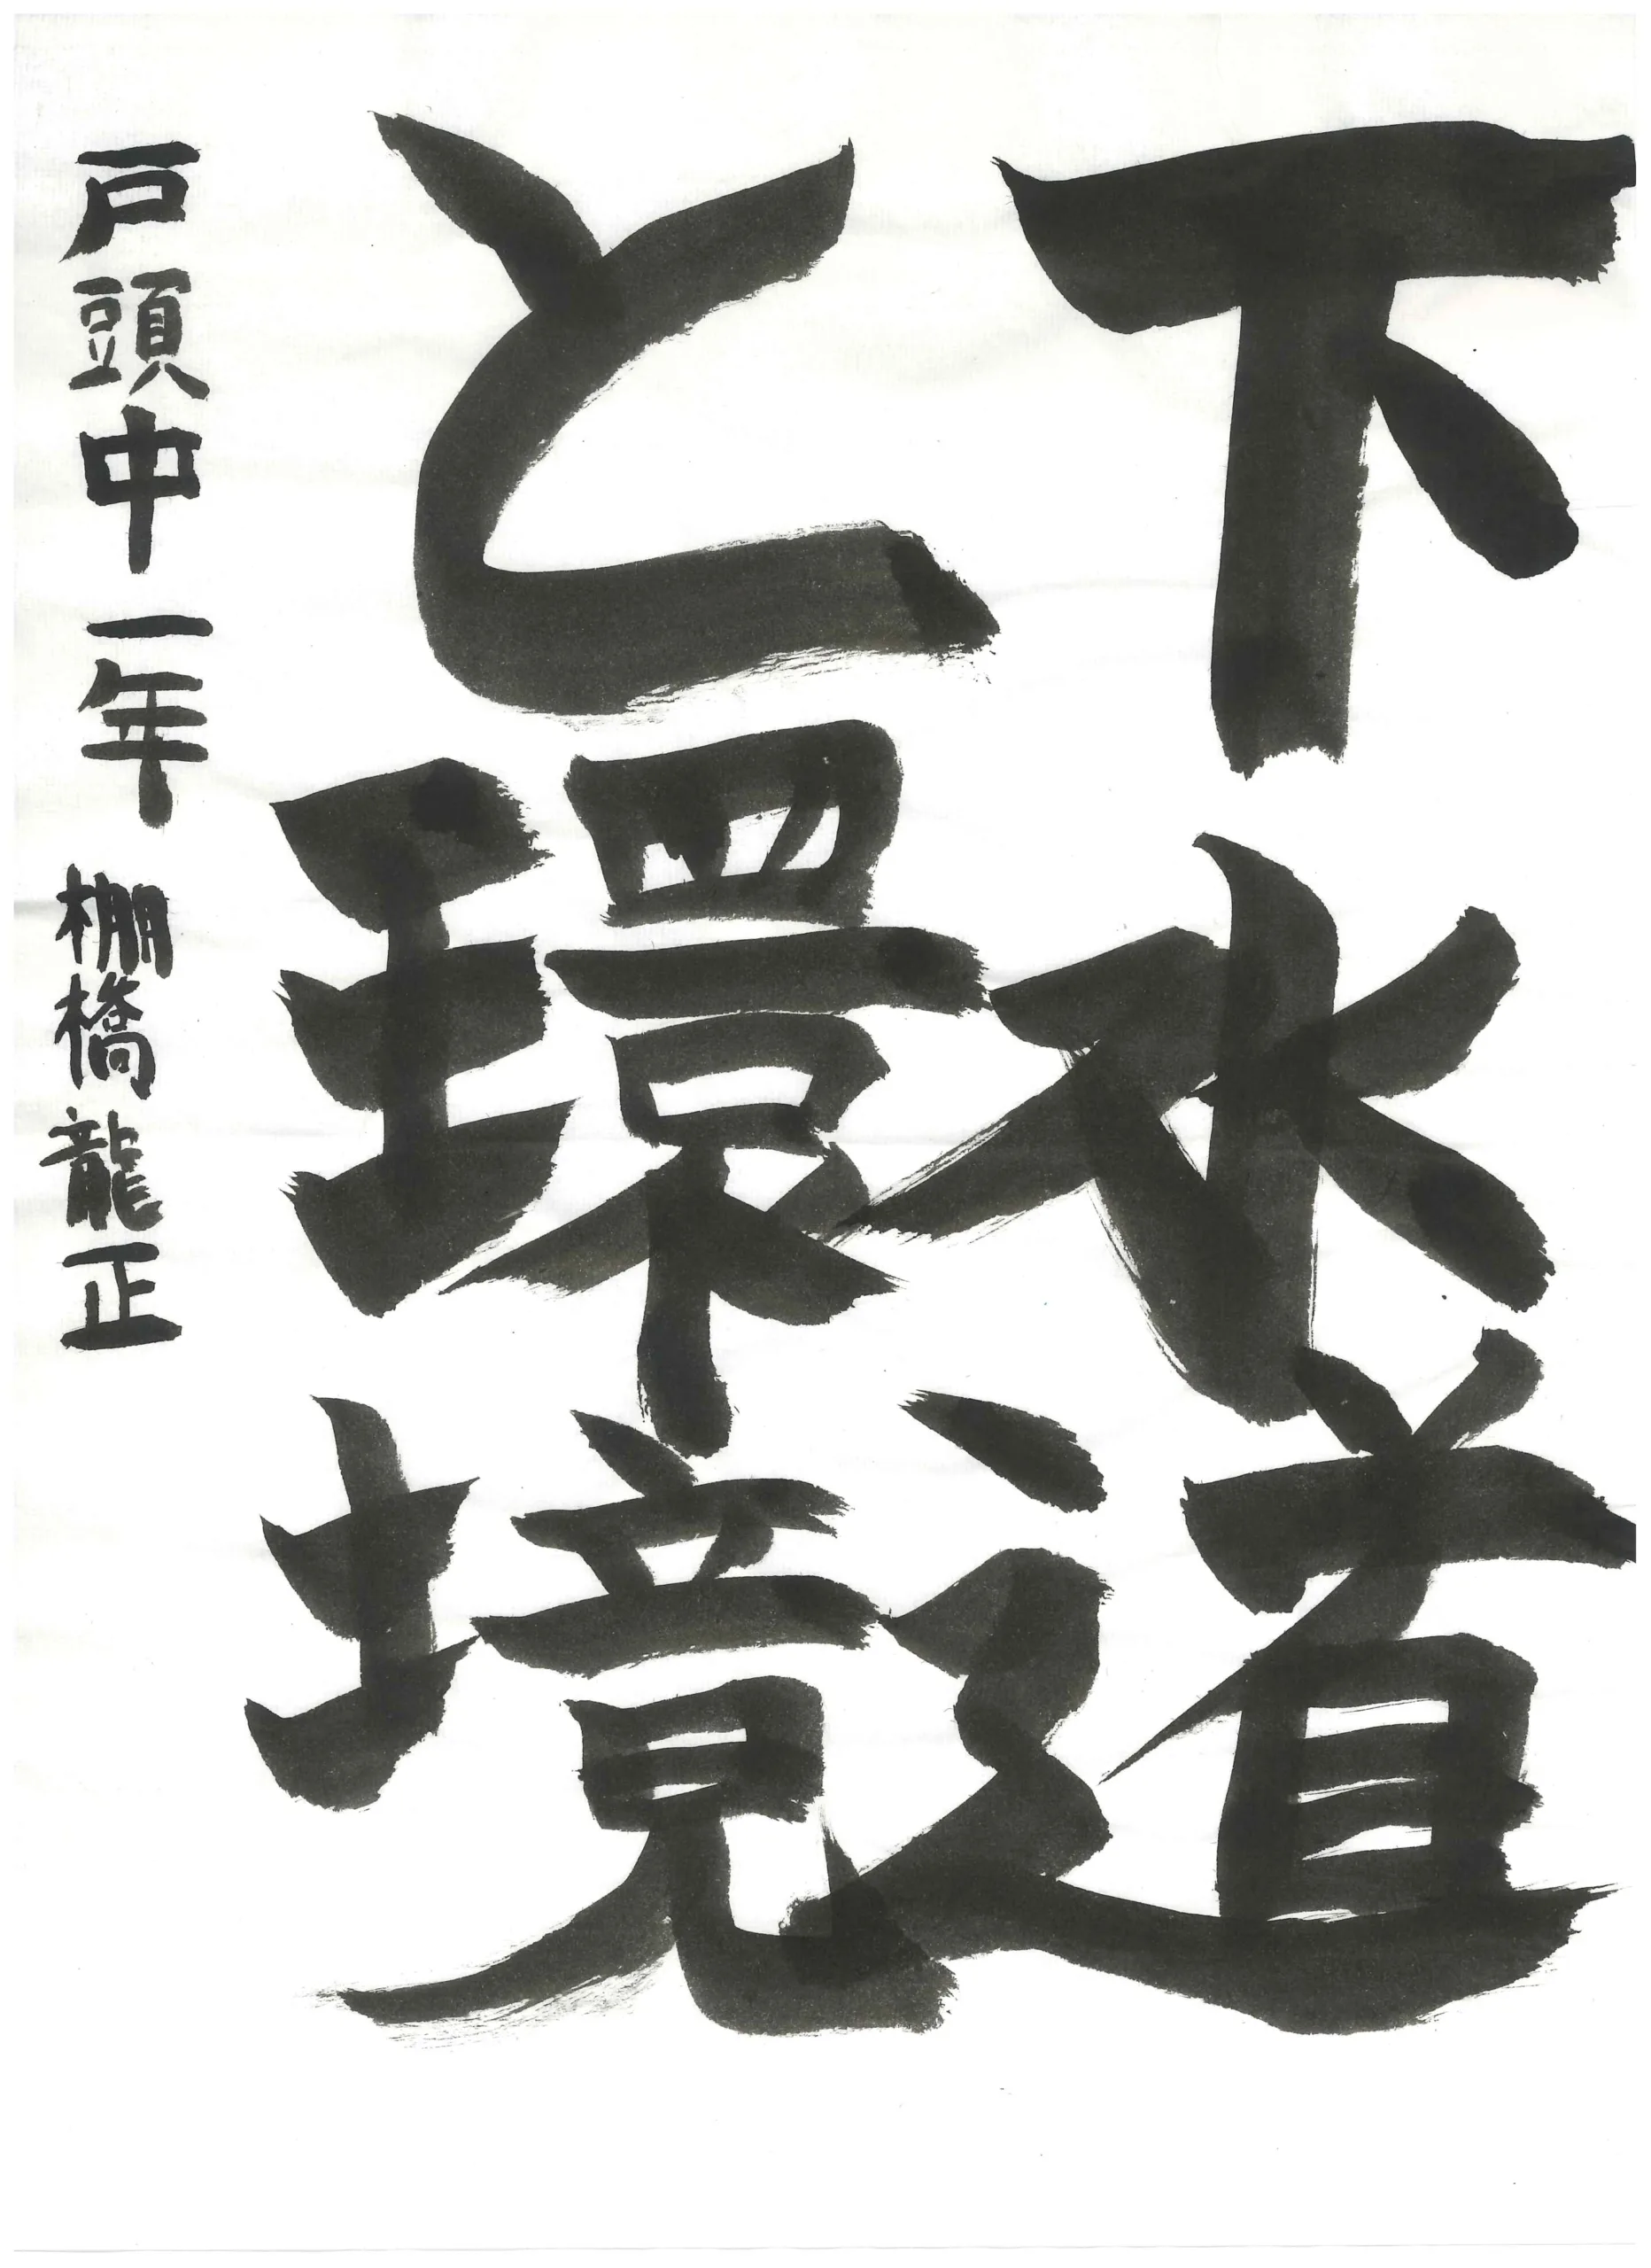 下水道
と環境
戸頭中一年 棚橋龍正